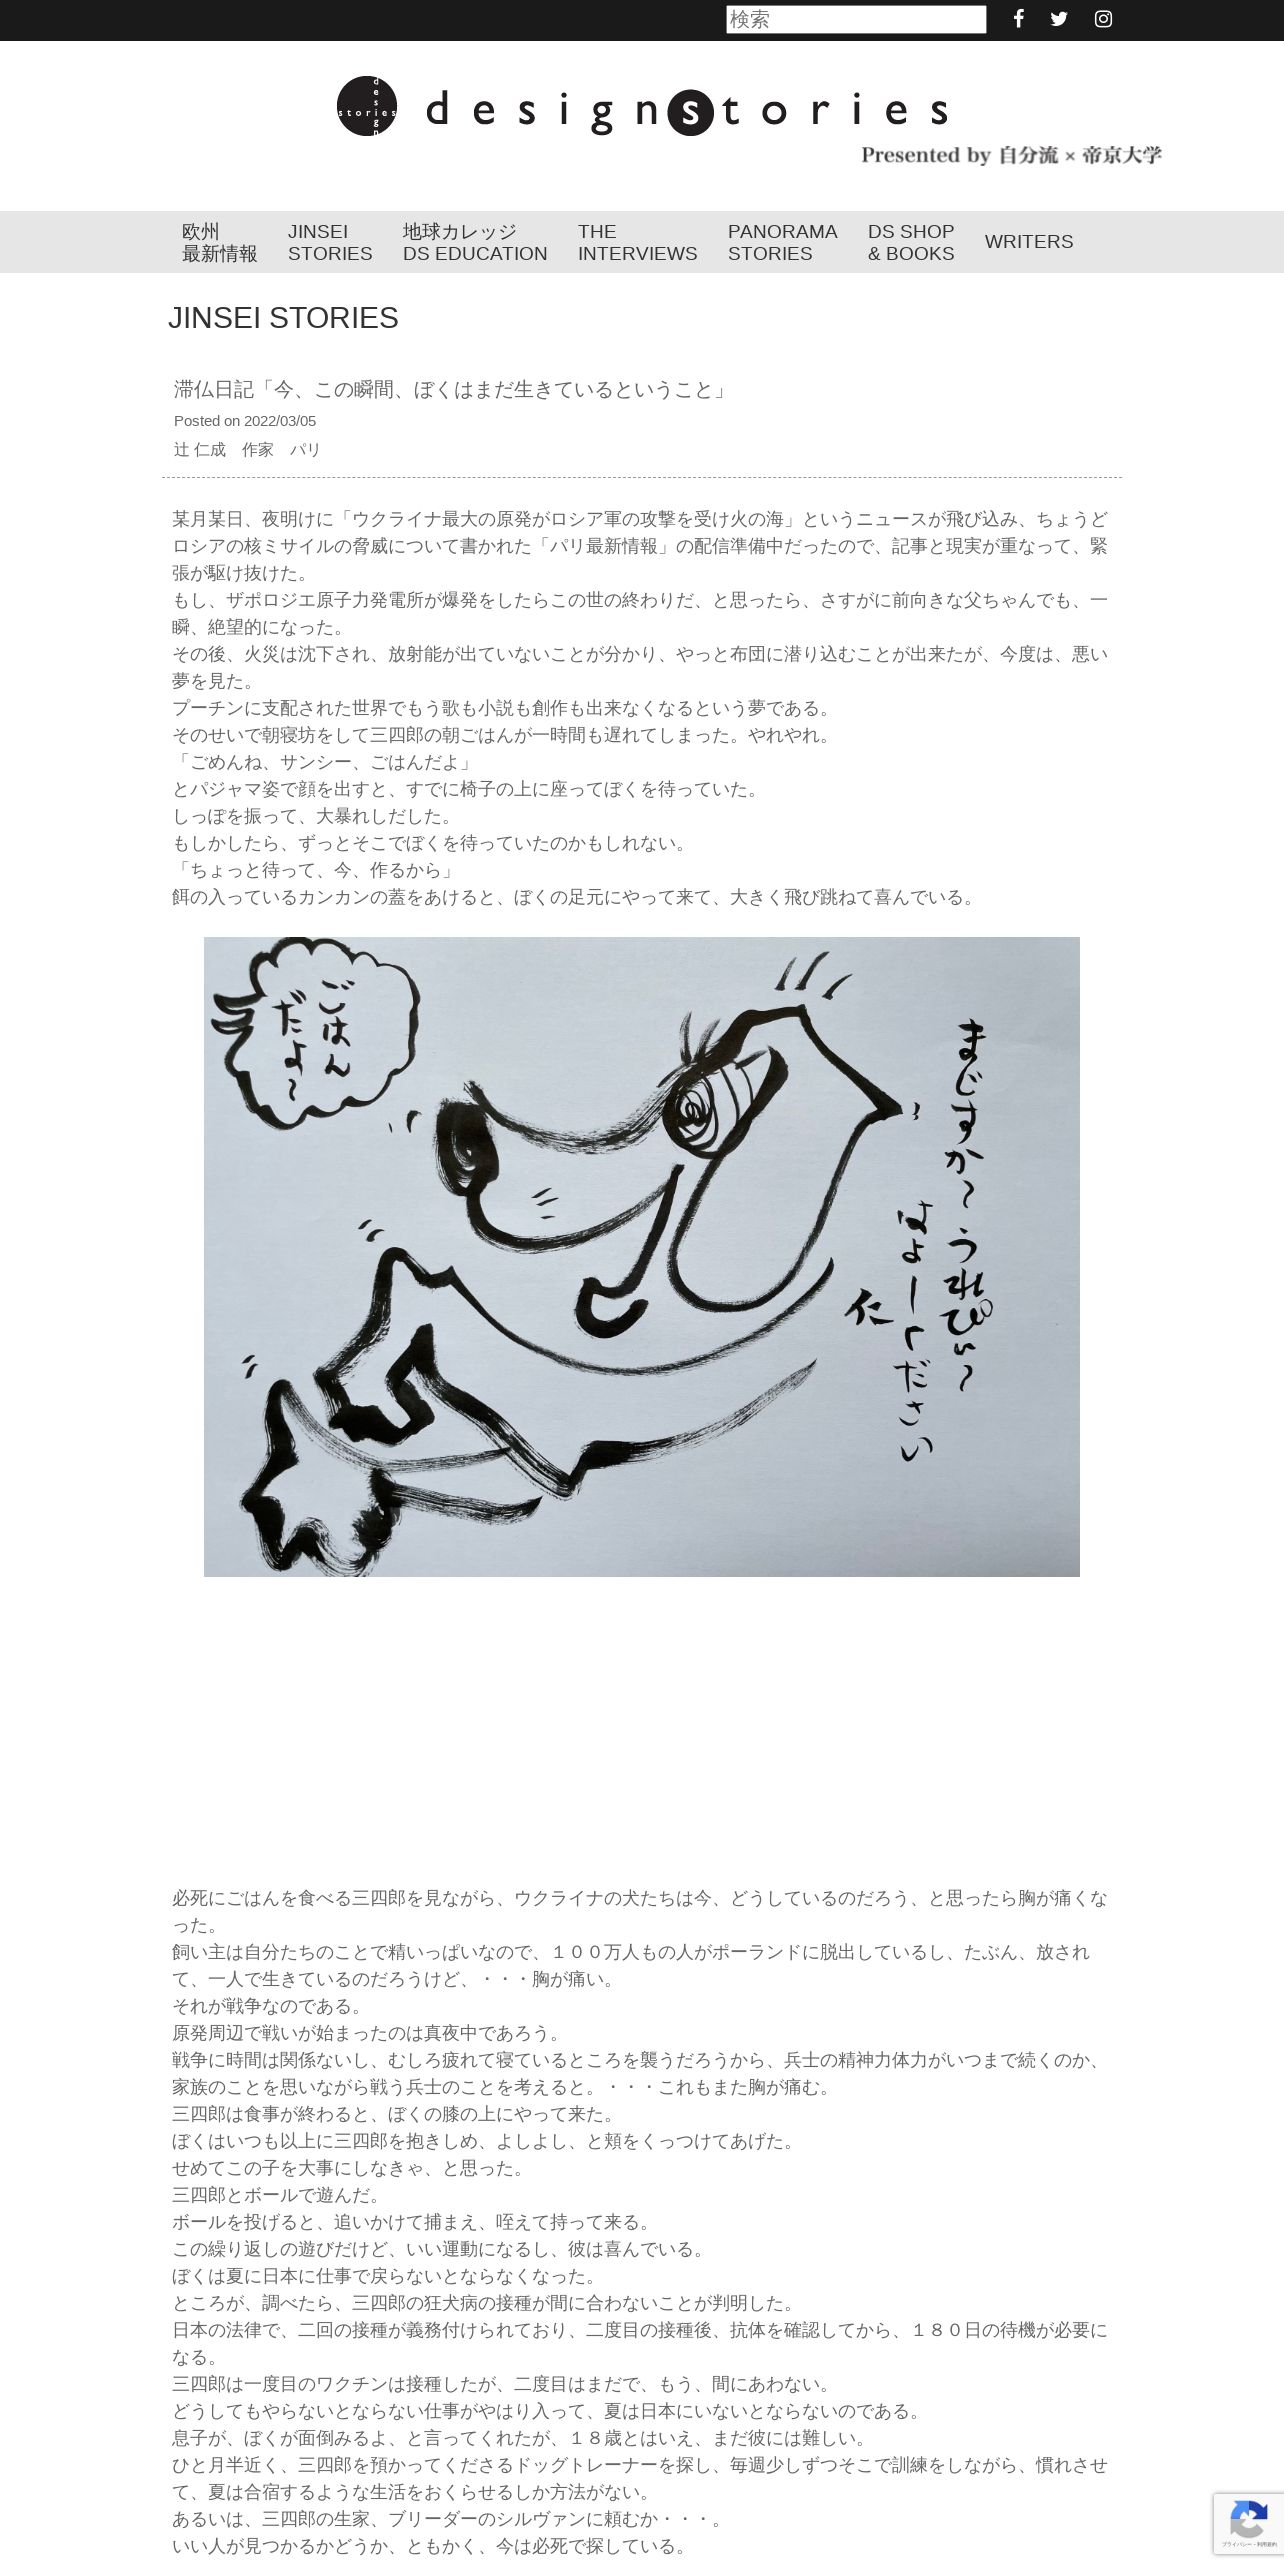 検索
design
stories
designstories
Presented by 自分流 × 帝京大学
欧州
最新情報
JINSEI
STORIES
地球カレッジ
DS EDUCATION
THE
INTERVIEWS
PANORAMA
STORIES
DS SHOP
& BOOKS
WRITERS
JINSEI STORIES
滞仏日記「今、この瞬間、ぼくはまだ生きているということ」
Posted on 2022/03/05
辻 仁成　作家　パリ
某月某日、夜明けに「ウクライナ最大の原発がロシア軍の攻撃を受け火の海」というニュースが飛び込み、ちょうど
ロシアの核ミサイルの脅威について書かれた「パリ最新情報」の配信準備中だったので、記事と現実が重なって、緊
張が駆け抜けた。
もし、ザポロジエ原子力発電所が爆発をしたらこの世の終わりだ、と思ったら、さすがに前向きな父ちゃんでも、一
瞬、絶望的になった。
その後、火災は沈下され、放射能が出ていないことが分かり、やっと布団に潜り込むことが出来たが、今度は、悪い
夢を見た。
プーチンに支配された世界でもう歌も小説も創作も出来なくなるという夢である。
そのせいで朝寝坊をして三四郎の朝ごはんが一時間も遅れてしまった。やれやれ。
「ごめんね、サンシー、ごはんだよ」
とパジャマ姿で顔を出すと、すでに椅子の上に座ってぼくを待っていた。
しっぽを振って、大暴れしだした。
もしかしたら、ずっとそこでぼくを待っていたのかもしれない。
「ちょっと待って、今、作るから」
餌の入っているカンカンの蓋をあけると、ぼくの足元にやって来て、大きく飛び跳ねて喜んでいる。
ごはん
だよ〜
まじすか〜うれぴい〜
はよーしださい
仁
必死にごはんを食べる三四郎を見ながら、ウクライナの犬たちは今、どうしているのだろう、と思ったら胸が痛くな
った。
飼い主は自分たちのことで精いっぱいなので、１００万人もの人がポーランドに脱出しているし、たぶん、放され
て、一人で生きているのだろうけど、・・・胸が痛い。
それが戦争なのである。
原発周辺で戦いが始まったのは真夜中であろう。
戦争に時間は関係ないし、むしろ疲れて寝ているところを襲うだろうから、兵士の精神力体力がいつまで続くのか、
家族のことを思いながら戦う兵士のことを考えると。・・・これもまた胸が痛む。
三四郎は食事が終わると、ぼくの膝の上にやって来た。
ぼくはいつも以上に三四郎を抱きしめ、よしよし、と頬をくっつけてあげた。
せめてこの子を大事にしなきゃ、と思った。
三四郎とボールで遊んだ。
ボールを投げると、追いかけて捕まえ、咥えて持って来る。
この繰り返しの遊びだけど、いい運動になるし、彼は喜んでいる。
ぼくは夏に日本に仕事で戻らないとならなくなった。
ところが、調べたら、三四郎の狂犬病の接種が間に合わないことが判明した。
日本の法律で、二回の接種が義務付けられており、二度目の接種後、抗体を確認してから、１８０日の待機が必要に
なる。
三四郎は一度目のワクチンは接種したが、二度目はまだで、もう、間にあわない。
どうしてもやらないとならない仕事がやはり入って、夏は日本にいないとならないのである。
息子が、ぼくが面倒みるよ、と言ってくれたが、１８歳とはいえ、まだ彼には難しい。
ひと月半近く、三四郎を預かってくださるドッグトレーナーを探し、毎週少しずつそこで訓練をしながら、慣れさせ
て、夏は合宿するような生活をおくらせるしか方法がない。
あるいは、三四郎の生家、ブリーダーのシルヴァンに頼むか・・・。
いい人が見つかるかどうか、ともかく、今は必死で探している。
プライバシー - 利用規約